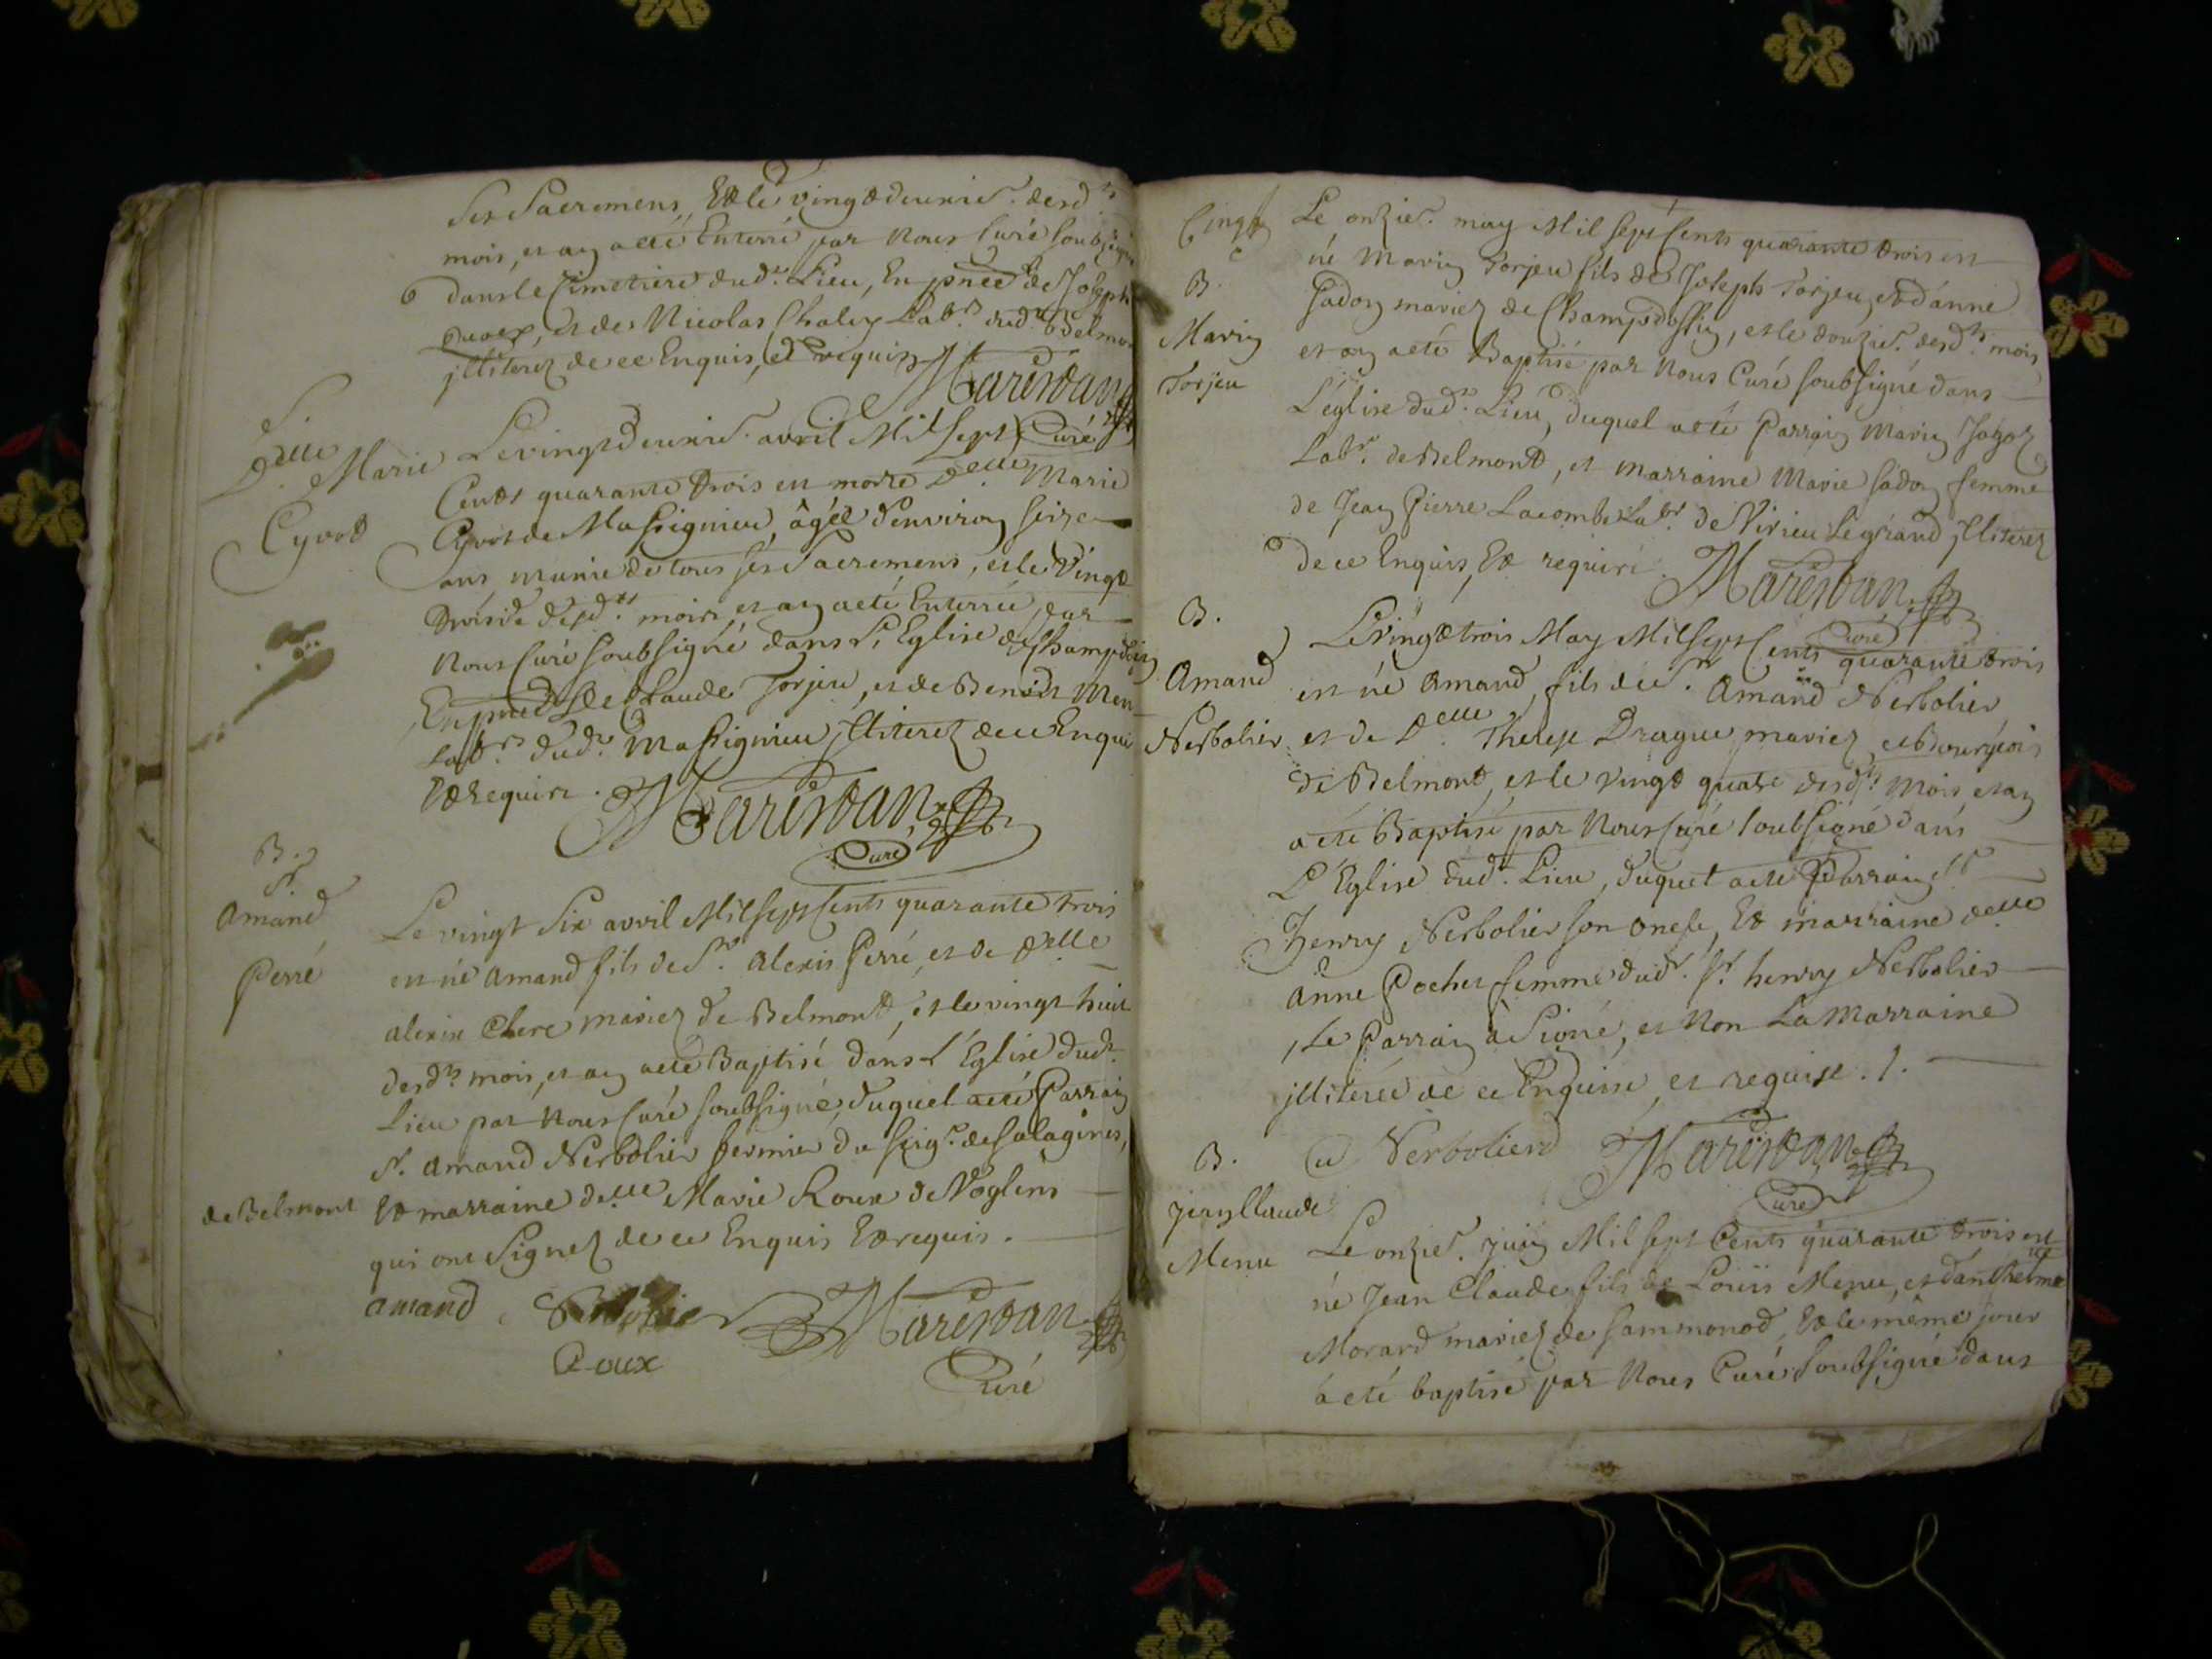 ses Sacremens, Et le vingtdeuxie. desd.ts
mois, et an a eté Enterré par Nous Curé soubsigné
dans le Cimetiere dud.t Lieu, En pnce de Joseph
et de Nicolas Chaley Lab.rs dud.t Belmont
jlliterez de ce Enquis, et requis
Marestan
Curé
S.
D.elle Marie
Cyvot
Le vingtdeuxie. avril Mil Sept
Cents quarante trois est morte D.elle Marie
Cyvot de Massignieu, âgée d'environ seize
ans, munie de tous ses Sacremens, et le Vingt
troisie desd.ts mois, et an a eté Enterrée par
Nous Curé soubsigné dans L'Eglise de
En pnce de Claude Torjeu, et de Benoit Menu
Lab.rs dud.t Massignieu jlliterez de ce Enquis
Et requis.
Marestan
Curé
B.
S.r
Amand
Perré
Le vingt Six avril Mil sept Cents quarante trois
est né Amand fils de S.r Alexis Perré, et de D.elle
Alexie Clerc mariez de Belmont, et le vingt huit
desd.ts mois, et an a eté Baptisé dans L'Eglise dud.t
Lieu par Nous Curé soubsigné, duquel a eté Parrain
S.r Amand Nerbolier fermier du Seig.r de Salagines,
de Belmont
Et marraine d.elle Marie Roux de Voglens
qui ont Signez de ce Enquis Et requis.
amand Nerbolier
Marestan
Roux
Curé
B.
Marin
Torjeu
Le onzie. may Mil Sept Cents quarante trois est
né Marin Torjeu fils de Joseph Torjeu, et d'anne
Sadon mariez de Champdossin, et le douzie. desd.ts mois
et an a eté Baptisé par Nous Curé soubsigné dans
L'église dud.t Lieu, duquel a eté Parrain Marin
Lab.r de Belmont, et marraine Marie Sadon femme
de Jean Pierre Lacombe Lab.r de Virieu Le grand, jlliterez
de ce Enquis, Et requis.
Marestan
Curé
B.
Amand
Nerbolier
Le vingt trois May Mil Sept Cents quarante trois
est né Amand, fils de S.r Amand Nerbolier
et de D.elle Therese Drague mariez, et Bourgeois
de Belmont, et le vingt quatre desd.ts mois, et an
a eté Baptisé par Nous Curé soubsigné dans
L'Eglise dud.t Lieu, duquel a eté Parrain S.r
henry Nerbolier son oncle, Et marraine d.elle
Anne Pochet femme dud.t S.r henry Nerbolier
, Le Parrain à Signé, et Non La Marraine
jlliterée de ce Enquise, et requise. /.
Nerbolier
Marestan
Curé
B.
Jean Claude
Menu
Le onzie. juin Mil Sept Cents quarante trois est
né Jean Claude fils de Louis Menu, et d'anthelme
Morard mariez de Sammonod, Et le même jour
à eté baptisé par Nous Curé soubsigné dans